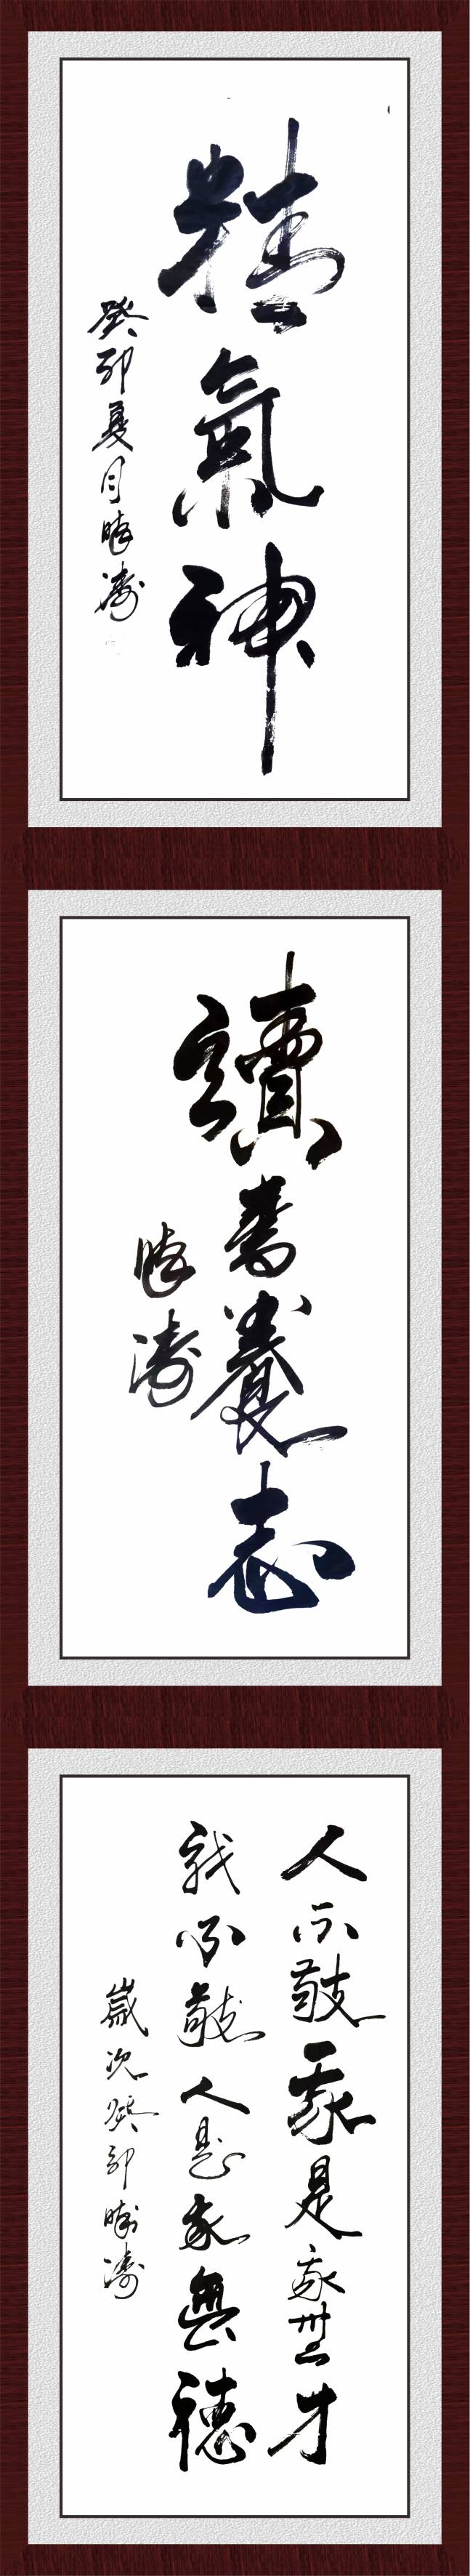 精氣神
癸卯夏月涛
讀書養志
涛
人不敬我是我無才
我不敬人是我無德
歲次癸卯涛